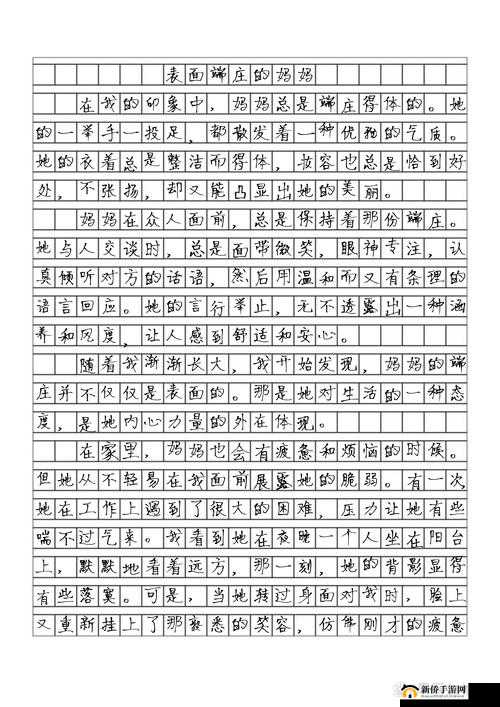 表面端庄的妈妈
在我的印象中，妈妈总是端庄得体的。她
的一举手一投足，都散发着一种优雅的气质。
她的衣着总是整洁而得体，妆容也总是恰到好
处，不张扬，却又能凸显出她的美丽。
妈妈在众人面前，总是保持着那份端庄。
她与人交谈时，总是面带微笑，眼神专注，认
真倾听对方的话语，然后用温和而又有条理的
语言回应。她的言行举止，无不透露出一种涵
养和风度，让人感到舒适和安心。
随着我渐渐长大，我开始发现，妈妈的端
庄并不仅仅是表面的。那是她对生活的一种态
度，是她内心力量的外在体现。
在家里，妈妈也会有疲惫和烦恼的时候。
但她从不轻易在我面前展露她的脆弱。有一次，
她在工作上遇到了很大的困难，压力让她有些
喘不过气来。我看到她在夜晚一个人坐在阳台
上，默默地看着远方，那一刻，她的背影显得
有些落寞。可是，当她转过身面对我时，脸上
又重新挂上了那熟悉的笑容，仿佛刚才的疲惫
新侨手游网